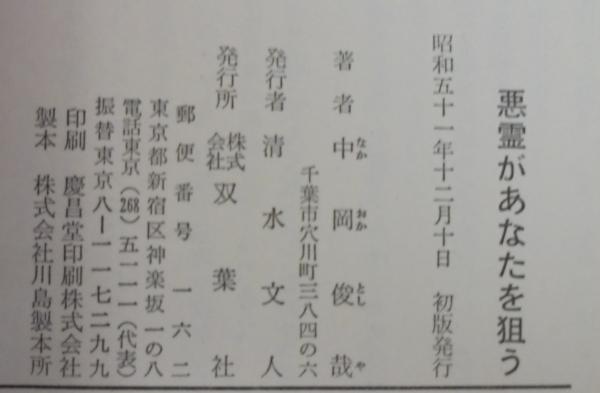 悪霊があなたを狙う
昭和五十一年十二月十日 初版発行
著者 中岡俊哉
なか おか とし や
千葉市穴川町三八四の六
発行者 清水文人
発行所 株式会社 双葉社
郵便番号 一六二
東京都新宿区神楽坂一の八
電話東京(268)五一一一(代表)
振替東京八ー一一七二九九
印刷 慶昌堂印刷株式会社
製本 株式会社川島製本所